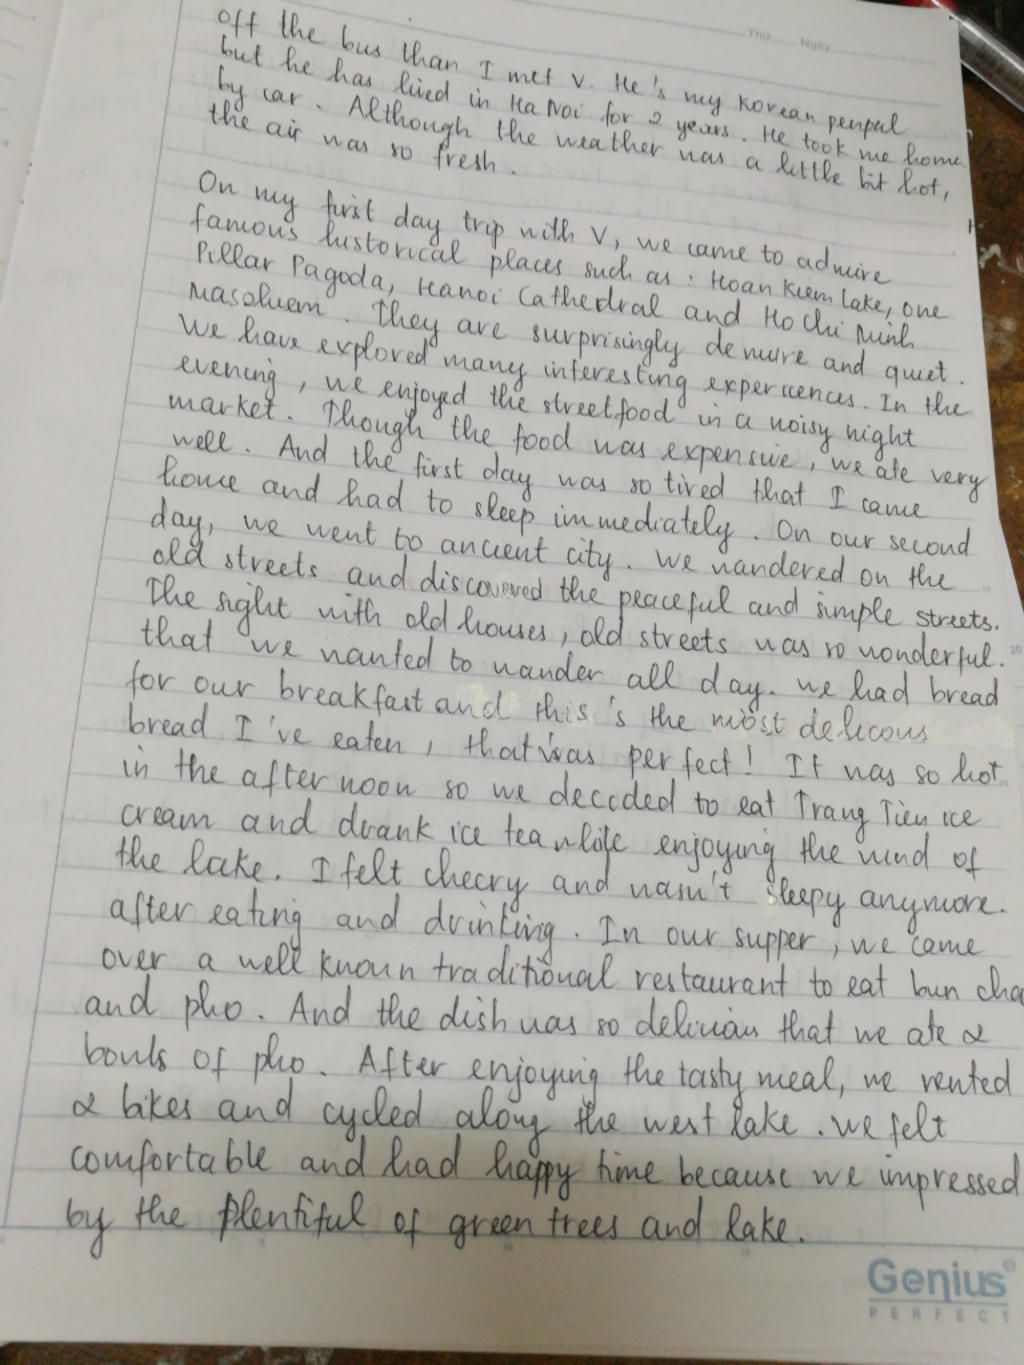 Thứ Ngày
off the bus than I met V. He's my Korean penpal
but he has lived in Ha Noi for 2 years. He took me home
by car. Although the weather was a little bit hot,
the air was so fresh.
On my first day trip with V, we came to admire
famous historical places such as: Hoan Kiem Lake, one
Pillar Pagoda, Hanoi Cathedral and Ho Chi Minh
Masoluem. They are surprisingly demure and quiet.
We have explored many interesting experiences. In the
evening, we enjoyed the streetfood in a noisy night
market. Though the food was expensive, we ate very
well. And the first day was so tired that I came
home and had to sleep immediately. On our second
day, we went to ancient city. We wandered on the
old streets and discovered the peaceful and simple streets.
The sight with old houses, old streets was so wonderful.
that we wanted to wander all day. We had bread
for our breakfast and this's the most delicous
bread I've eaten, that was perfect! It was so hot
in the afternoon so we decided to eat Trang Tien ice
cream and drank ice tea while enjoying the wind of
the lake. I felt cheery and wasn't sleepy anymore.
after eating and drinking. In our supper, we came
over a well known traditional restaurant to eat bun cha
and pho. And the dish was so delicious that we ate 2
bowls of pho. After enjoying the tasty meal, we rented
2 bikes and cycled along the west lake. We felt
comfortable and had happy time because we impressed
by the plentiful of green trees and lake.
Genius
PERFECT